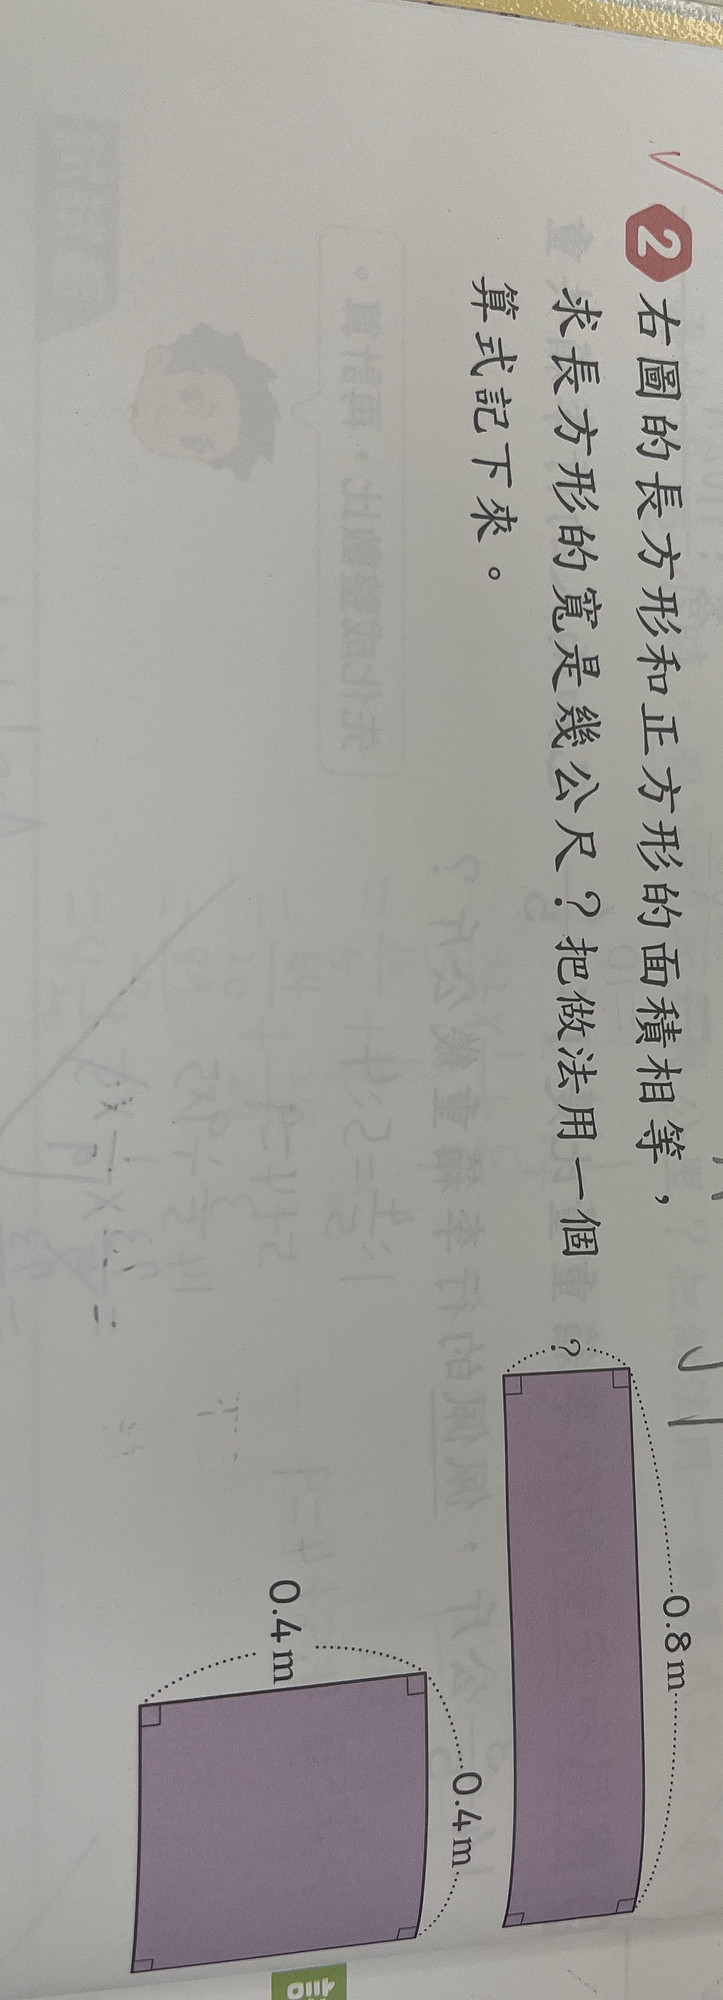 2 右圖的長方形和正方形的面積相等，
求長方形的寬是幾公尺？把做法用一個
算式記下來。
0.8m
?
0.4m
0.4m